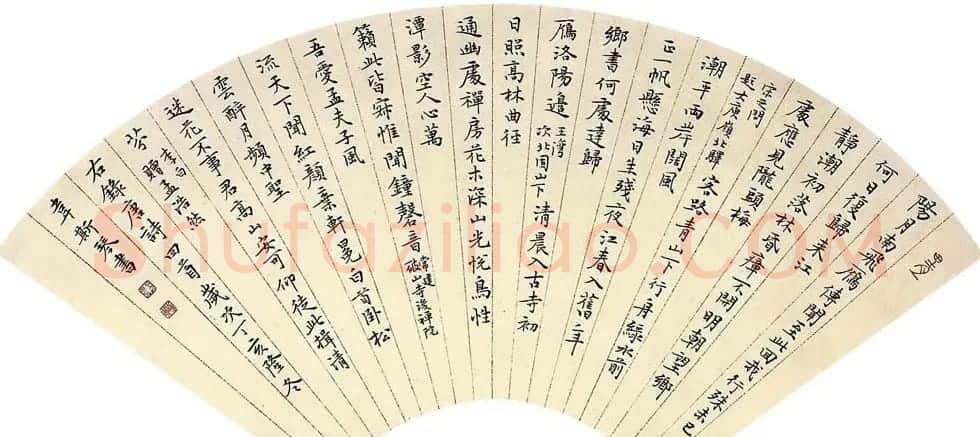 陽月南飛雁傳聞至此回我行殊未已
何日復歸來江
靜潮初落林昏瘴不開明朝望鄉
處應見隴頭梅
宋之問
題大庾嶺北驛
客路青山下行舟綠水前
潮平兩岸闊風
正一帆懸海日生殘夜江春入舊年
鄉書何處達歸
雁洛陽邊
王灣
次北固山下
清晨入古寺初
日照高林曲徑
通幽處禪房花木深山光悅鳥性
潭影空人心萬
籟此皆寂惟聞鐘磬音
常建
破山寺後禪院
吾愛孟夫子風
流天下聞紅顏棄軒冕白首臥松
雲醉月頻中聖
迷花不事君高山安可仰徒此揖清
芬
李白
贈孟浩然
右錄唐詩四首歲次丁亥隆冬
韋斯琴書
Shufaziliao.COM